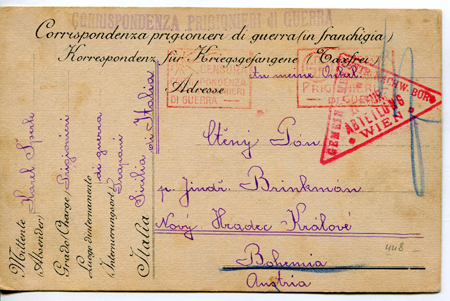 CORRISPONDENZA PRIGIONIERI di GUERRA
Corrispondenza prigionieri di guerra (in franchigia)
Korrespondenz für Kriegsgefangene (Taxfrei)
Adresse
PRIGIONIERI
DI GUERRA
DI GUERRA
GEMEIN
ABTEILUNG
WIEN
Ctěný Pán
p. Jindr. Brinkman
Nový Hradec Králové
Bohemia
Austria
448
Mittente
Absender
Karel
Grado: Charge Prigionieri
Luogo d'internamento
Internierungsort
di guerra
Trapani
Sicilia
Italia
Italia